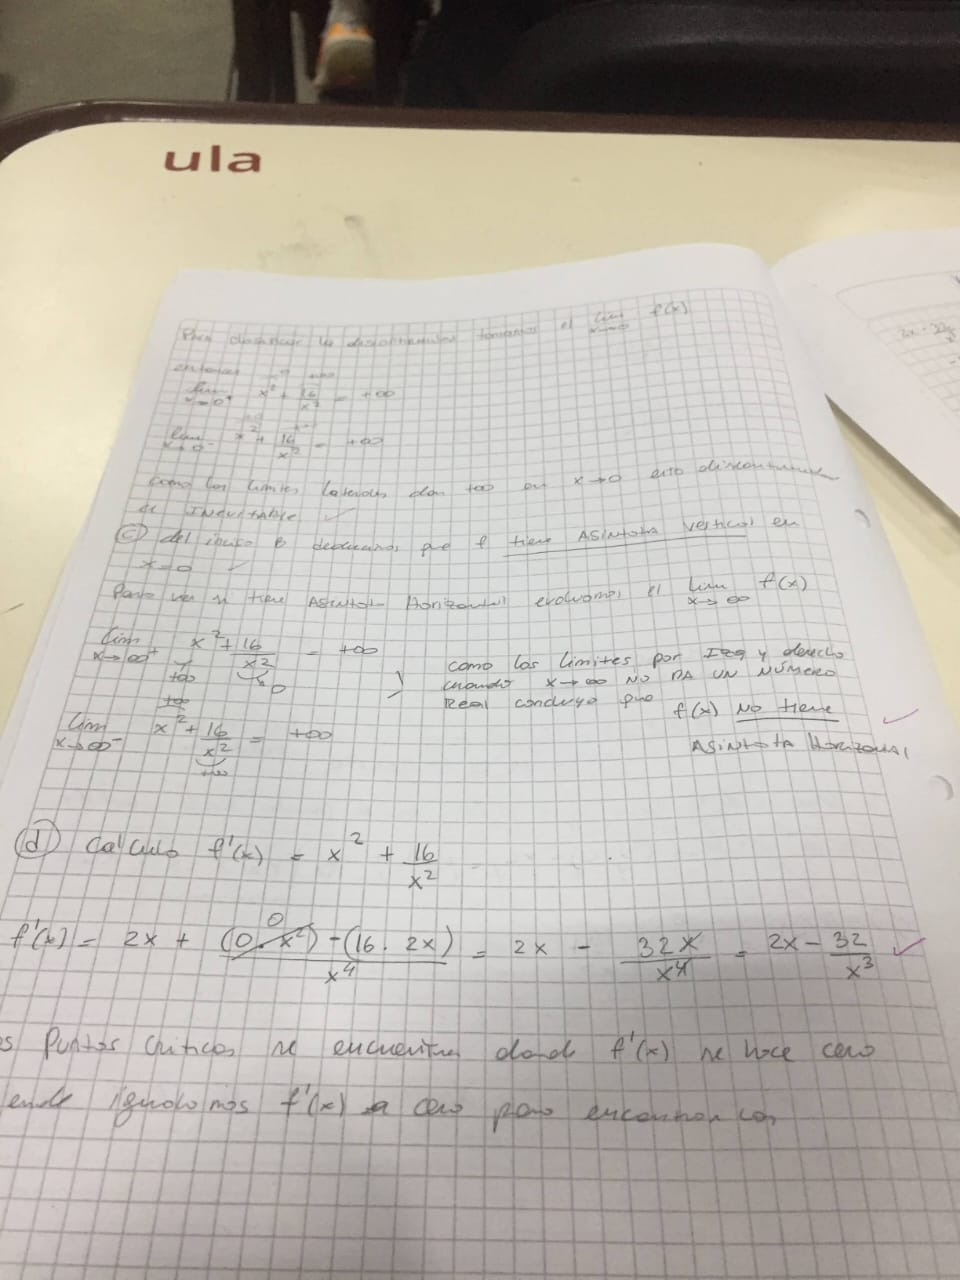 ula
Para clasificar la discontinuidad tomamos el lim x→0 f(x)
entonces
lim x→0⁺ x² + 16/x² = +∞
lim x→0⁻ x² + 16/x² = +∞
como los limites laterales dan +∞ en x→0 esta discontinuidad
es INEVITABLE
(c) del inciso B deducimos que f tiene ASINTOTA vertical en
x=0
Para ver si tiene ASINTOTA Horizontal evaluamos el lim x→∞ f(x)
lim x→∞⁺ x² + 16/x² = +∞
+∞ 0
como los limites por IZQ y derecha
cuando x→∞ NO DA UN NÚMERO
Real concluyo que
f(x) NO tiene
ASINTOTA HORIZONTAL
+∞
lim x→∞⁻ x² + 16/x² = +∞
(d) Calculo f'(x) = x² + 16/x²
f'(x) = 2x + ((0.x²) - (16.2x))/x⁴ = 2x - 32x/x⁴ = 2x - 32/x³
0
Puntos criticos se encuentra donde f'(x) se hace cero
igualamos f'(x) a cero para encontrarlos
2x - 32